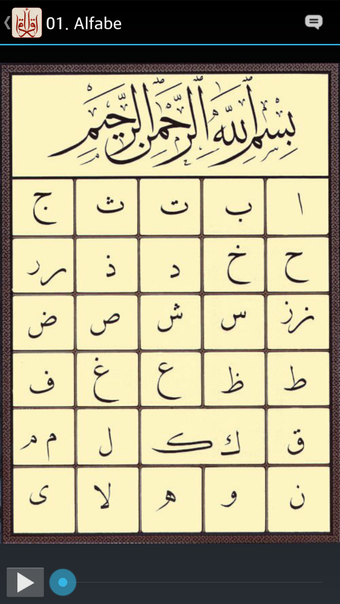 01. Alfabe
بسم الله الرحمن الرحيم
ا ب ت ث ج
ح خ د ذ ر ر
ز ز س ش ص ض
ط ظ ع غ ف
ق ك ک ل م م
ن و ه لا ى